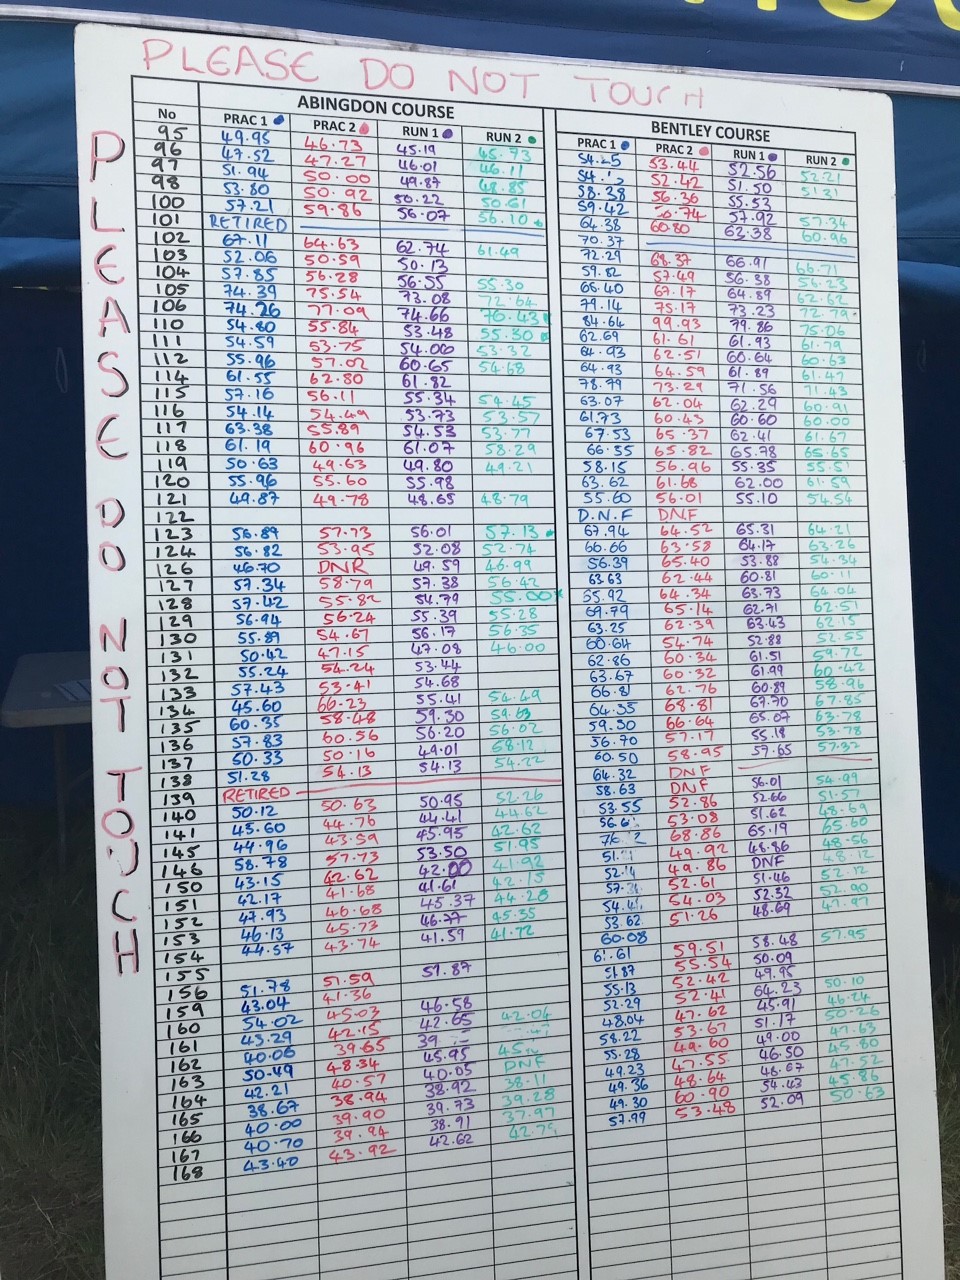 PLEASE DO NOT TOUCH
PLEASE DO NOT TOUCH
ABINGDON COURSE BENTLEY COURSE
No PRAC 1 PRAC 2 RUN 1 RUN 2 PRAC 1 PRAC 2 RUN 1 RUN 2
95 49.95 46.73 45.19 45.73 54.25 53.44 52.56 52.21
96 47.52 47.27 46.01 46.11 52.42 51.50 51.31
97 51.94 50.00 49.87 48.85 58.38 56.36 55.53
98 53.80 50.92 50.22 50.61 59.42 57.92 57.34
100 57.21 59.86 56.07 56.10 64.38 60.80 62.38 60.96
101 RETIRED 70.37
102 67.11 64.63 62.74 61.49 72.29 68.37 66.91 66.71
103 52.06 50.59 50.13 59.82 57.49 56.38 56.23
104 57.85 56.28 56.55 55.30 66.40 67.17 64.89 62.62
105 74.39 75.54 73.08 72.64 79.14 75.17 73.23 72.79
106 74.26 77.09 74.66 76.43 84.64 99.93 79.86 75.06
110 54.80 55.84 53.48 55.30 62.69 61.61 61.93 61.79
111 54.59 53.75 54.00 53.32 64.93 62.51 60.64 60.63
112 55.96 57.02 60.65 54.68 64.93 64.59 61.89 61.47
114 61.55 62.80 61.82 78.79 73.29 71.56 71.43
115 57.16 56.11 55.34 54.45 63.07 62.04 62.29 60.91
116 54.14 54.49 53.73 53.57 61.73 60.43 60.60 60.00
117 63.38 55.89 54.53 53.77 67.53 65.37 62.41 61.67
118 61.19 60.96 61.07 58.29 66.35 65.82 65.78 65.65
119 50.63 49.63 49.80 49.21 58.15 56.96 55.35 55.51
120 55.96 55.60 55.98 63.62 61.68 62.00 61.59
121 49.87 49.78 48.65 48.79 55.60 56.01 55.10 54.54
122 D.N.F DNF
123 56.89 57.73 56.01 57.13 67.94 64.52 65.31 64.21
124 56.82 53.95 52.08 52.74 66.66 63.58 64.17 63.26
126 46.70 DNR 49.59 46.99 56.39 65.40 53.88 54.34
127 57.34 58.79 57.38 56.42 63.63 62.44 60.81 60.11
128 57.42 55.82 54.79 55.00 65.92 64.34 63.73 64.04
129 56.94 56.24 55.39 55.28 69.79 65.14 62.71 62.51
130 55.89 54.67 56.17 56.35 63.25 62.39 63.43 62.15
131 50.42 47.15 47.08 46.00 60.64 54.74 52.88 52.55
132 55.24 54.24 53.44 62.86 60.34 61.51 59.72
133 57.43 53.41 54.68 63.67 60.32 61.99 60.42
134 45.60 66.23 55.41 54.49 66.81 62.76 60.89 58.96
135 60.35 58.48 59.30 59.63 64.35 68.81 67.70 67.85
136 57.83 60.56 56.20 56.02 59.50 66.64 65.07 63.78
137 50.33 50.16 49.01 68.12 56.70 57.17 55.18 53.78
138 51.28 54.13 54.13 54.22 60.50 58.95 57.65 57.37
139 RETIRED 64.32 DNF
140 50.12 50.63 50.95 52.26 58.63 DNF 56.01 54.99
141 43.60 44.76 44.41 44.62 53.55 52.86 52.66 51.57
145 44.96 43.59 45.95 42.62 53.08 51.62 48.69
146 58.78 57.73 53.50 51.95 68.86 65.19 65.60
150 43.15 42.62 42.00 41.92 49.92 48.86 48.56
151 42.17 41.68 41.61 42.15 52.14 49.86 DNF 48.12
152 47.93 46.68 45.37 44.28 52.61 51.46 52.12
153 46.13 45.73 46.77 45.35 54.03 52.32 52.90
154 44.57 43.74 41.59 41.72 53.62 51.26 48.69 47.97
155 60.08
156 51.78 51.59 51.87 61.61 59.51 58.48 57.95
159 43.04 41.36 51.87 55.54 50.09
160 54.02 45.03 46.58 42.04 55.13 52.42 49.95
161 43.29 42.15 42.65 52.29 52.41 64.23 50.10
162 40.06 39.65 48.04 47.62 45.91 46.24
163 50.49 48.34 45.95 DNF 58.22 53.67 51.17 50.26
164 42.21 40.57 40.05 38.11 55.28 49.60 49.00 47.63
165 38.67 38.94 38.92 39.28 49.23 47.55 46.50 45.80
166 40.00 39.90 39.73 37.97 49.36 48.64 48.67 47.52
167 40.70 39.94 38.91 42.79 49.30 60.90 54.43 45.86
168 43.40 43.92 42.62 57.99 53.48 52.09 50.63